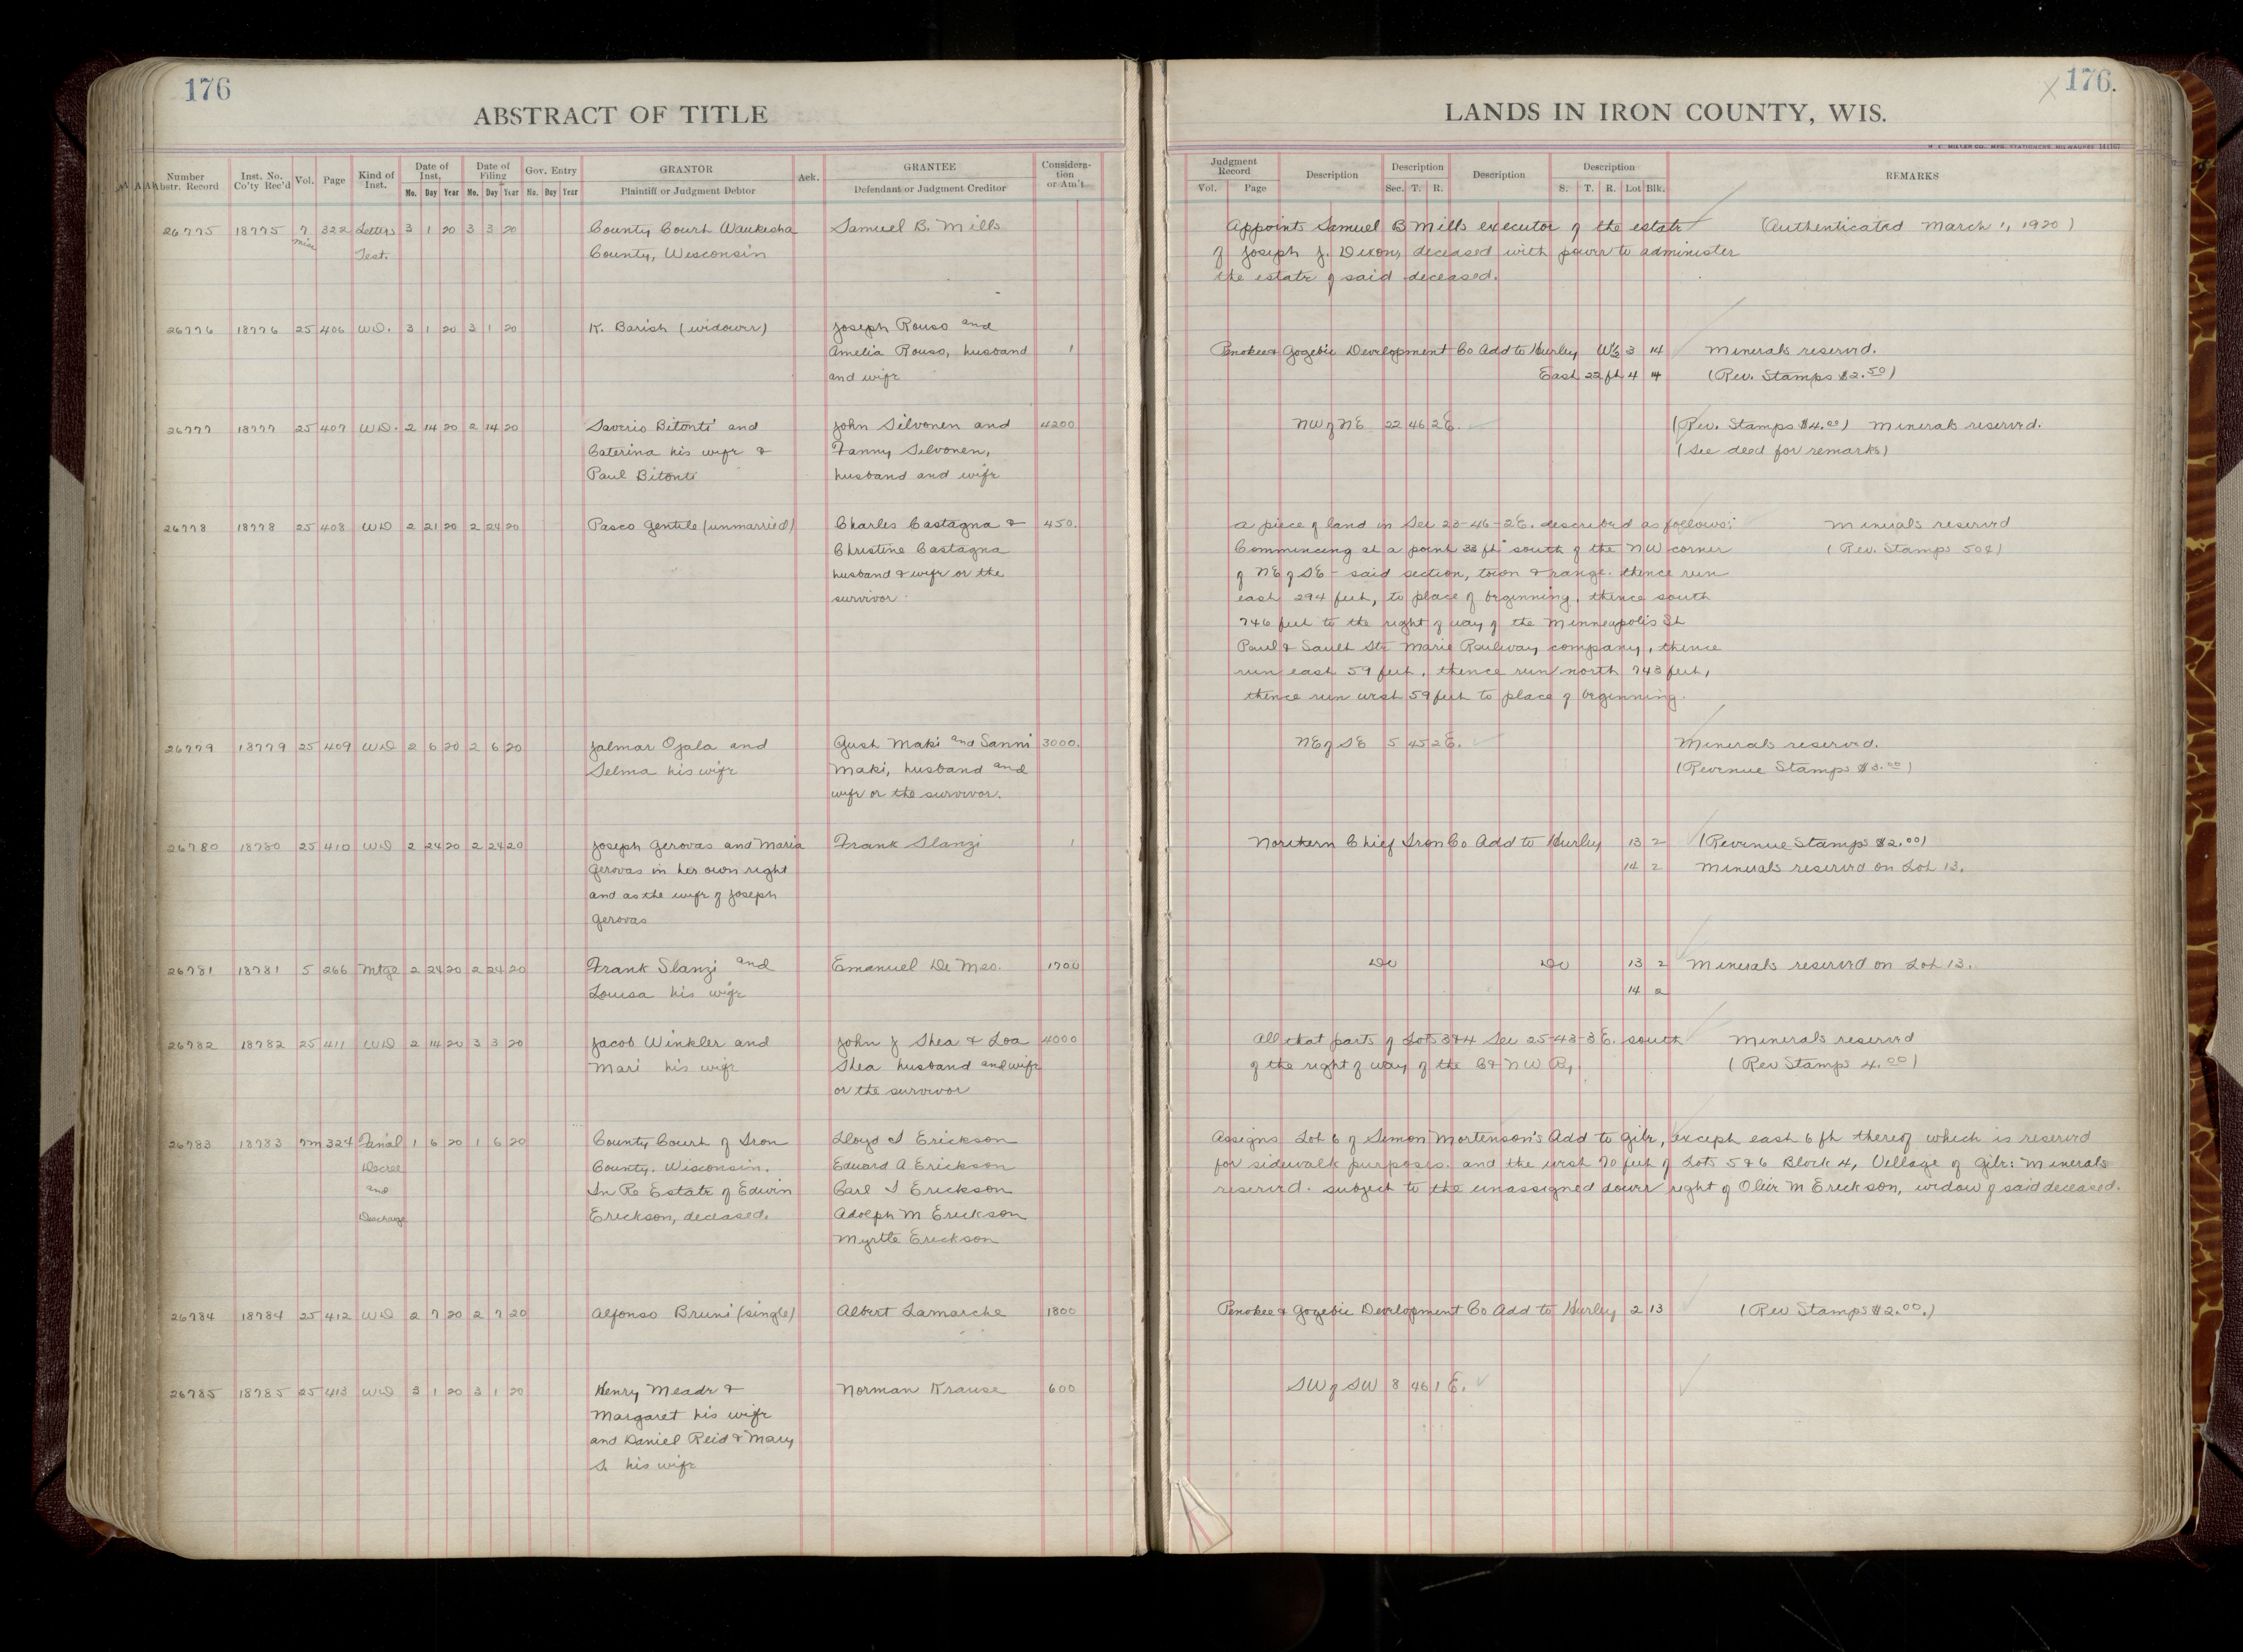 176
ABSTRACT OF TITLE
Number Abstr. Record Inst. No. Co'ty Rec'd Vol. Page Kind of Inst. Date of Inst. Date of Filing Gov. Entry GRANTOR Ack. GRANTEE Considera-tion or Am't
Mo. Day Year Mo. Day Year No. Day Year Plaintiff or Judgment Debtor Defendant or Judgment Creditor
26775 18775 7 322 Letters 3 1 20 3 3 20 County Court Waukesha Samuel B. Mills
Misc Test. County, Wisconsin
26776 18776 25 406 WD. 3 1 20 3 1 20 K. Barish (widower) Joseph Rouso and
Amelia Rouso, husband 1
and wife
26777 18777 25 407 WD. 2 14 20 2 14 20 Saverio Bitonti and John Silvonen and 4200
Caterina his wife & Fanny Silvonen,
Paul Bitonti husband and wife
26778 18778 25 408 WD 2 21 20 2 24 20 Pasco Gentile (unmarried) Charles Castagna & 450.
Christine Castagna
husband & wife or the
survivor.
26779 18779 25 409 WD 2 6 20 2 6 20 Jalmar Ojala and Gust Maki and Sanni 3000.
Selma his wife Maki, husband and
wife or the survivor.
26780 18780 25 410 WD 2 24 20 2 24 20 Joseph Gerovas and Maria Frank Slanzi 1
Gerovas in her own right
and as the wife of Joseph
Gerovas
26781 18781 5 266 Mtge 2 24 20 2 24 20 Frank Slanzi and Emanuel De Meo. 1700
Louisa his wife
26782 18782 25 411 WD 2 14 20 3 3 20 Jacob Winkler and John J Shea & Loa 4000
Mari his wife Shea husband and wife
or the survivor
26783 18783 7M 324 Final 1 6 20 1 6 20 County Court of Iron Lloyd I Erickson
Decree County. Wisconsin. Edward A Erickson
and In Re Estate of Edwin Carl I Erickson
Discharge Erickson, deceased. Adolph M Erickson
Myrtle Erickson
26784 18784 25 412 WD 2 7 20 2 7 20 Alfonso Bruni (single) Albert Lamarche 1800
26785 18785 25 413 WD 3 1 20 3 1 20 Henry Meade & Norman Krause 600
Margaret his wife
and Daniel Reid & Mary
S. his wife
X 176.
LANDS IN IRON COUNTY, WIS.
H. C. MILLER CO., MFG. STATIONERS MILWAUKEE
Judgment Record Description Description Description Description REMARKS
Vol. Page Sec. T. R. S. T. R. Lot Blk.
Appoints Samuel B Mills executor of the estate (Authenticated March 1, 1920)
of Joseph J. Dixon, deceased with power to administer
the estate of said deceased.
Penokee & Gogebic Development Co Add to Hurley W½ 3 14 Minerals reserved.
East 22 ft 4 14 (Rev. Stamps $2.50)
NW of NE 22 46 2E. (Rev. Stamps $4.00) Minerals reserved.
(See deed for remarks)
A piece of land in Sec 23-46-2E. described as follows: Minerals reserved
Commencing at a point 33 ft south of the NW corner (Rev. Stamps 50¢)
of NE of SE - said section, town & range. thence run
east 294 feet, to place of beginning, thence south
746 feet to the right of way of the Minneapolis St
Paul & Sault Ste Marie Railway company, thence
run east 59 feet, thence run north 743 feet,
thence run west 59 feet to place of beginning.
NE of SE 5 45 2E. Minerals reserved.
(Revenue Stamps $3.00)
Northern Chief Iron Co Add to Hurley 13 2 (Revenue Stamps $2.00)
14 2 Minerals reserved on Lot 13.
Do Do 13 2 Minerals reserved on Lot 13.
14 2
All that parts of Lots 3&4 Sec 25-43-3E. south Minerals reserved
of the right of way of the C & NW Ry, (Rev Stamps 4.00)
Assigns Lot 6 of Simon Mortenson's Add to Gile, except east 6 ft thereof which is reserved
for sidewalk purposes. and the west 70 feet of Lots 5&6 Block 4, Village of Gile: Minerals
reserved. subject to the unassigned dower right of M Erickson, widow of said deceased.
Penokee & Gogebic Development Co Add to Hurley 2 13 (Rev Stamps $2.00.)
SW of SW 8 46 1E.